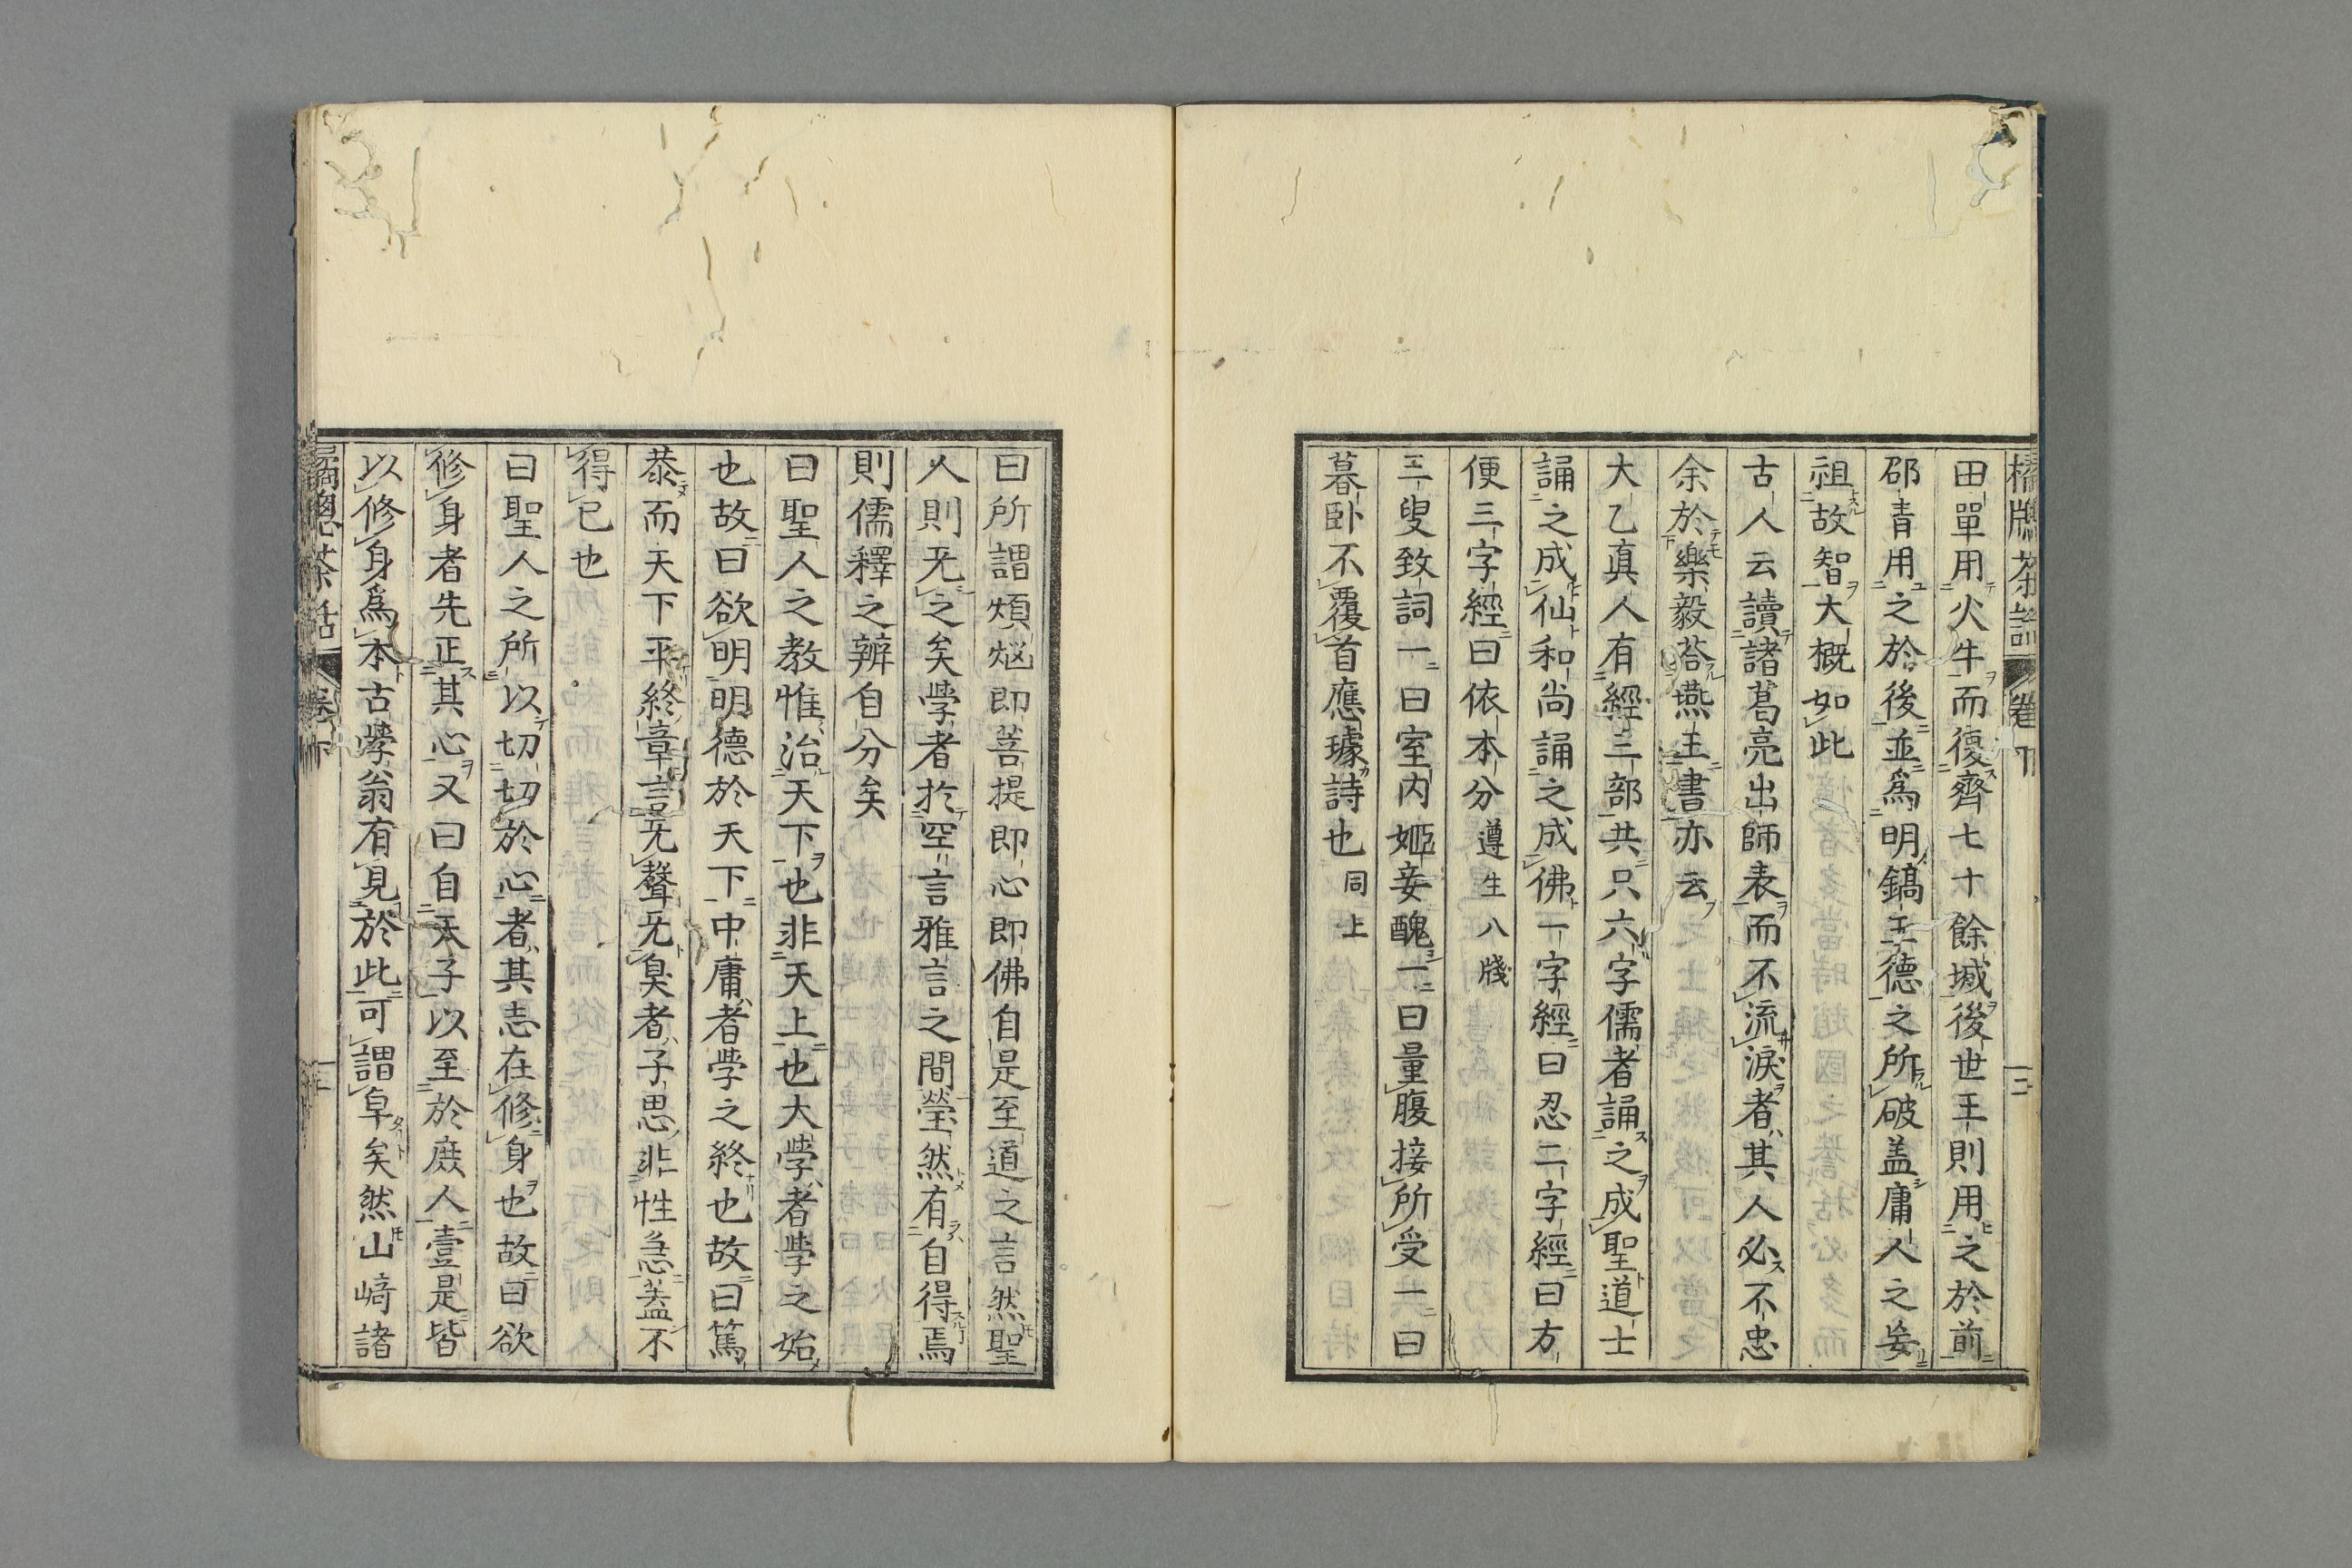 茶話 卷下
田單用火牛而復齊七十餘城後世王則用之於前
邵青用之於後並爲明鎬王德之所破盖庸人之妄
祖故智大概如此
古人云讀諸葛亮出師表而不流淚者其人必不忠
余於樂毅荅燕王書亦云
大乙真人有經三部共只六字儒者誦之成聖道士
誦之成仙和尚誦之成佛一字經曰忍二字經曰方
便三字經曰依本分 遵生八牋
三叟致詞一曰室内姬妾醜一曰量腹接所受一曰
暮卧不覆首應璩詩也 同上
曰所謂煩惱即菩提即心即佛自是至道之言然聖
人則无之矣學者於空言雅言之間瑩然有自得焉
則儒釋之辨自分矣
曰聖人之教惟治天下也非天上也大學者學之始
也故曰欲明明德於天下中庸者學之終也故曰篤
恭而天下平終章言无聲无臭者子思非性急盖不
得已也
曰聖人之所以切切於心者其志在修身也故曰欲
修身者先正其心又曰自天子以至於庶人壹是皆
以修身爲本古學翁有見於此可謂卓矣然山崎諸
茶話 卷下